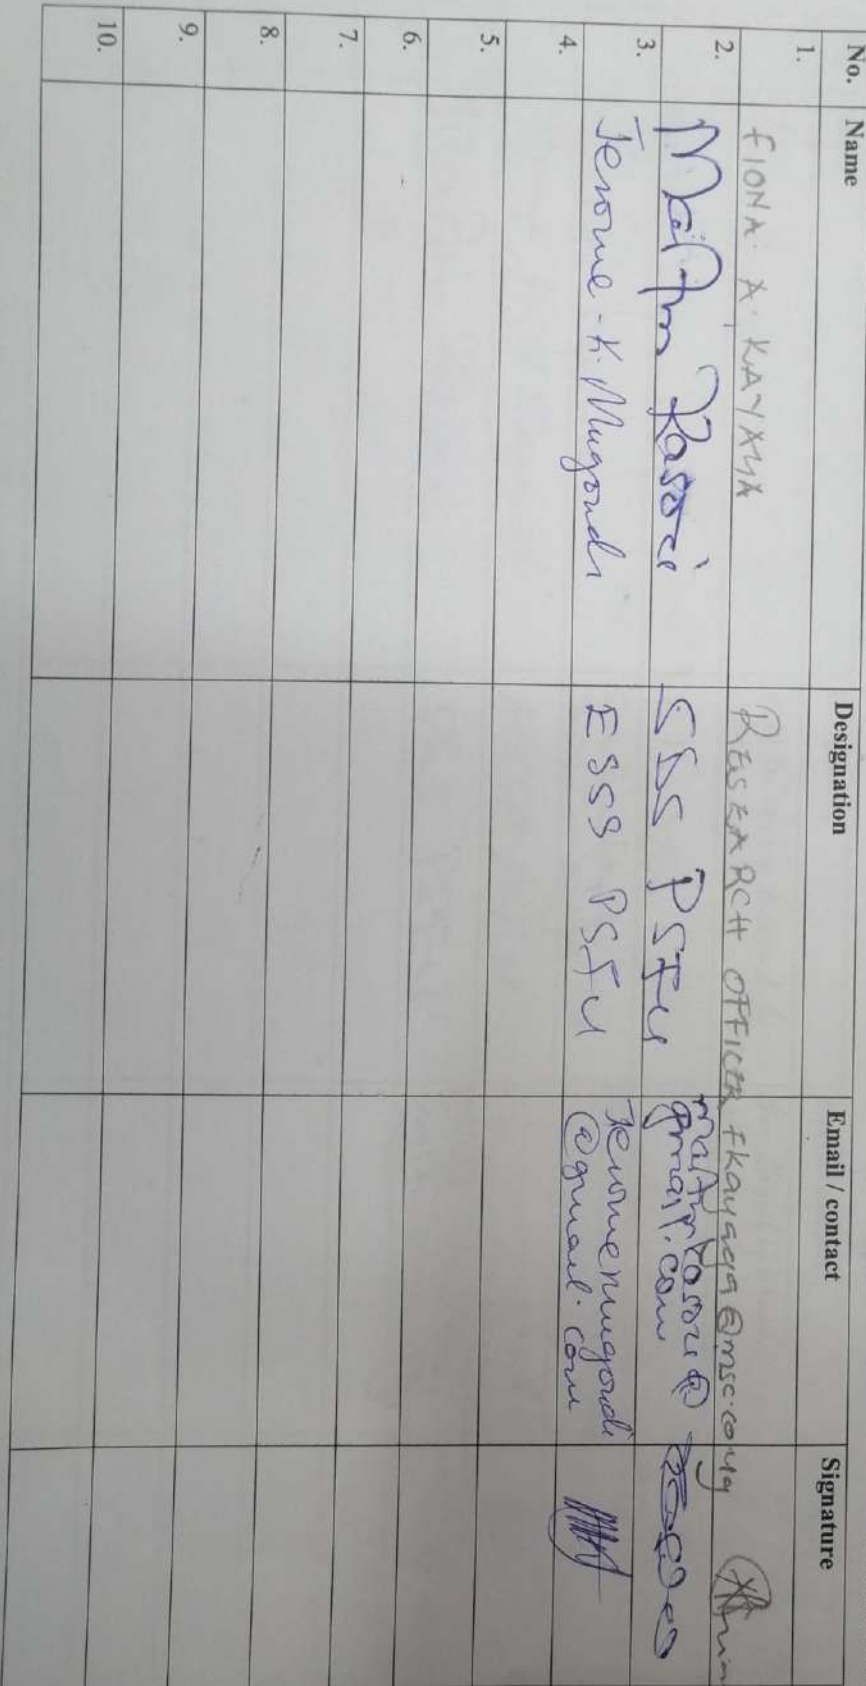 No. Name Designation Email / contact Signature
1. FIONA. A. KAYAYA RESEARCH OFFICER fkayaya@msc.co.ug
2. SSS PSFU
gmail.com
3. Jerome-K. Mugondi ESSS PSFU Jeromemugondi
@gmail.com
4.
5.
6.
7.
8.
9.
10.